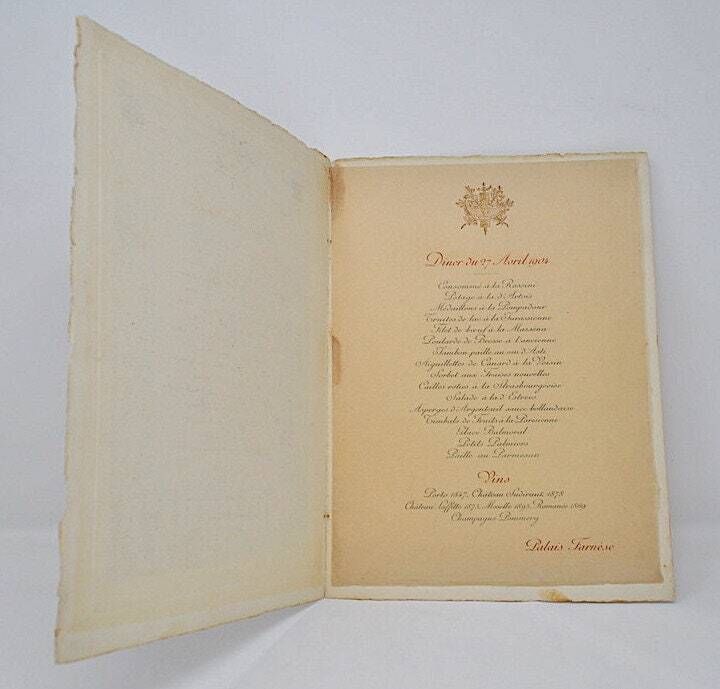 Diner du 27 Avril 1904
Consommé à la Rossini
Potage à la d'Artois
Médaillons à la Pompadour
Truites de lac à la Tarassienne
Filet de bœuf à la Massena
Poularde de Bresse à l'ancienne
Jambon paille au vin d'Asti
Aiguillettes de Canard à la Voisin
Sorbet aux Fraises nouvelles
Cailles roties à la Strasbourgeoise
Salade à la d'Estrées
Asperges d'Argenteuil sauce hollandaise
Timbale de Fruits à la Parisienne
Glace Balmoral
Petits Palmiers
Paille au Parmesan
Vins
Porto 1847, Château Suduiraut, 1878
Château Laffitte 1875, Moselle 1893, Romanée 1869
Champagne Pommery
Palais Farnèse